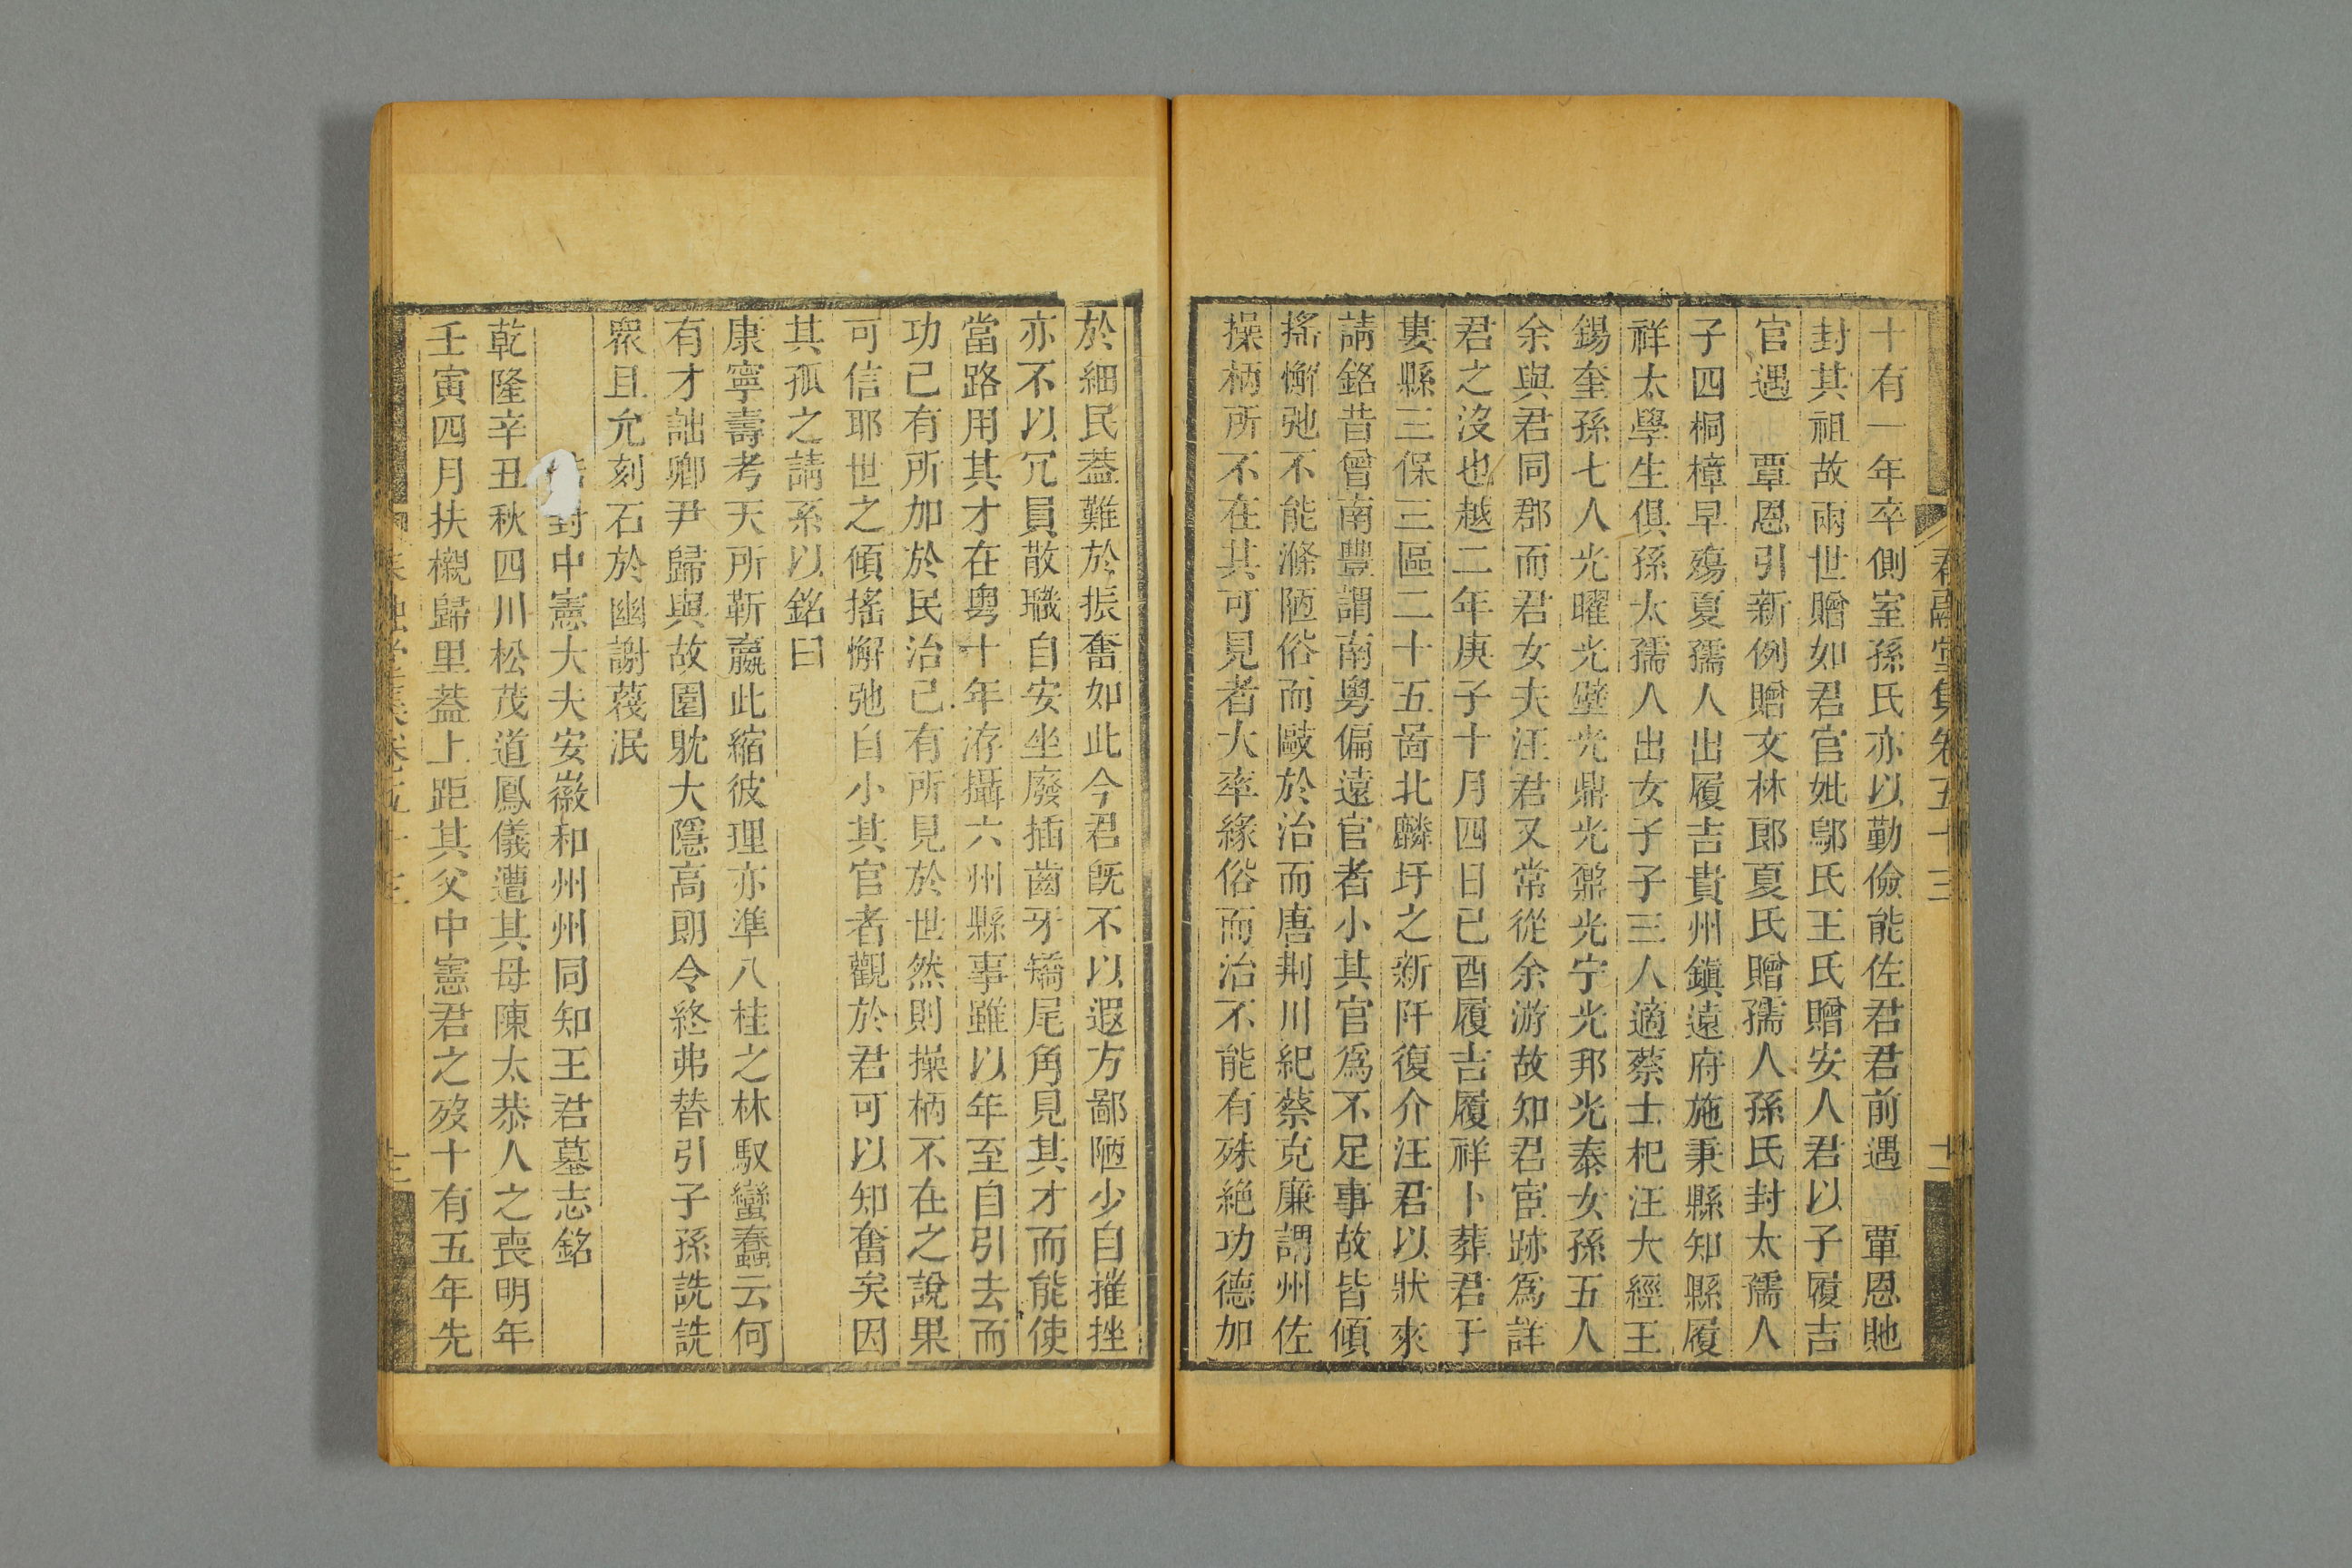 春融堂集卷五十三
十有一年卒側室孫氏亦以勤儉能佐君君前遇　覃恩貤
封其祖故兩世贈如君官妣鄔氏王氏贈安人君以子履吉
官遇　覃恩引新例贈文林郎夏氏贈孺人孫氏封太孺人
子四桐樟早殤夏孺人出履吉貴州鎭遠府施秉縣知縣履
祥太學生俱孫太孺人出女子子三人適蔡士杞汪大經王
錫奎孫七人光曜光璧光鼎光鼐光宁光邦光泰女孫五人
余與君同郡而君女夫汪君又常從余游故知君宦跡爲詳
君之沒也越二年庚子十月四日己酉履吉履祥卜葬君于
婁縣三保三區二十五啚北麟圩之新阡復介汪君以狀來
請銘昔曾南豐謂南粵偏遠官者小其官爲不足事故皆傾
搖懈弛不能滌陋俗而毆於治而唐荆川紀蔡克廉謂州佐
操柄所不在其可見者大率緣俗而治不能有殊絶功德加
於細民葢難於振奮如此今君旣不以遐方鄙陋少自摧挫
亦不以冗員散職自安坐廢插齒牙矯尾角見其才而能使
當路用其才在粵十年洊攝六州縣事雖以年至自引去而
功已有所加於民治已有所見於世然則操柄不在之說果
可信耶世之傾搖懈弛自小其官者觀於君可以知奮矣因
其孤之請系以銘曰
康寧壽考天所靳嬴此縮彼理亦準八桂之林馭蠻蠢云何
有才詘卿尹歸與故園躭大隱高朗令終弗替引子孫詵詵
衆且允刻石於幽謝薎泯
封中憲大夫安徽和州州同知王君墓志銘
乾隆辛丑秋四川松茂道鳳儀遭其母陳太恭人之喪明年
壬寅四月扶櫬歸里葢上距其父中憲君之歿十有五年先